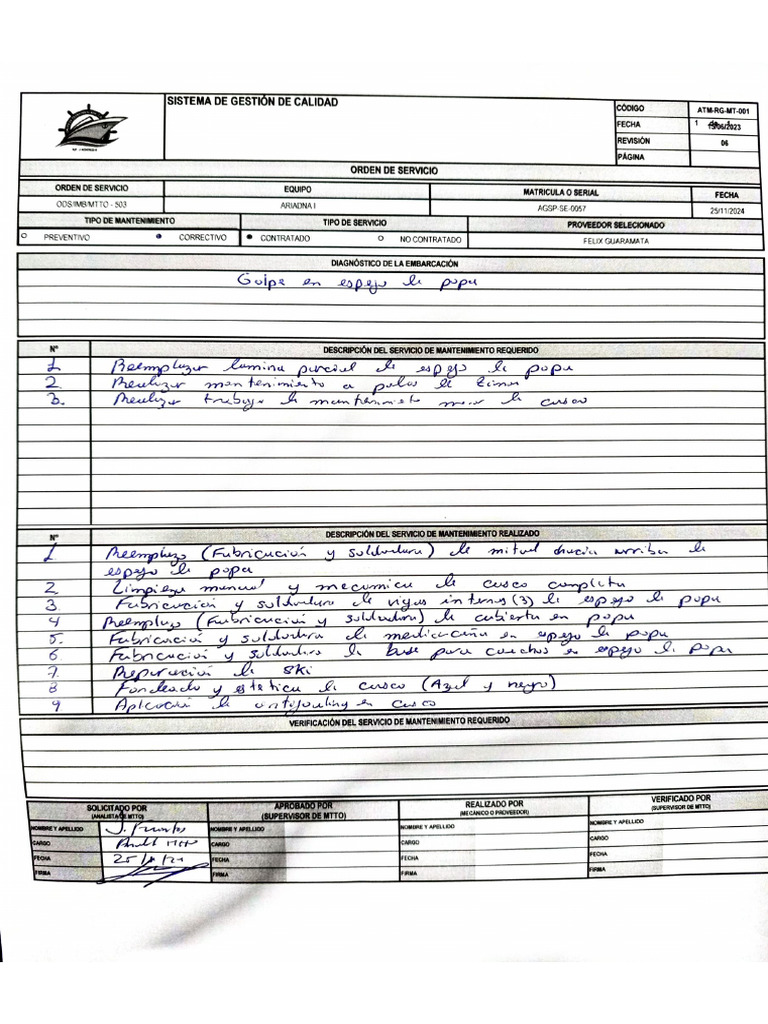 SISTEMA DE GESTIÓN DE CALIDAD
CÓDIGO ATM-RG-MT-001
FECHA 13/06/2023
REVISIÓN 06
PÁGINA
ORDEN DE SERVICIO
ORDEN DE SERVICIO EQUIPO MATRICULA O SERIAL FECHA
ODS/IMB/MTTO - 503 ARIADNA I AGSP-SE-0057 25/11/2024
TIPO DE MANTENIMIENTO TIPO DE SERVICIO PROVEEDOR SELECCIONADO
PREVENTIVO CORRECTIVO CONTRATADO NO CONTRATADO FELIX GUARAMATA
DIAGNÓSTICO DE LA EMBARCACIÓN
Golpe en espejo de popa
Nº DESCRIPCIÓN DEL SERVICIO DE MANTENIMIENTO REQUERIDO
1 Reemplazar lamina parcial de espejo de popa
2. Realizar mantenimiento a palas de
3. Realizar trabajo de mantenimiento de casco
Nº DESCRIPCIÓN DEL SERVICIO DE MANTENIMIENTO REALIZADO
1 Reemplazo (Fabricación y soldadura) de mitad hacia arriba de
espejo de popa
2 Limpieza manual y mecanica de casco completa
3. Fabricación y soldadura de vigas internas (3) de espejo de popa
4 Reemplazo (Fabricación y soldadura) de cubierta en popa
5. Fabricación y soldadura de medicaña en espejo de popa
6 Fabricación y soldadura de base para cauchos en espejo de popa
7. Reparación de ski
8 Fondeado y estetica de casco (Azul y negro)
9 Aplicación de antifouling en casco
VERIFICACIÓN DEL SERVICIO DE MANTENIMIENTO REQUERIDO
SOLICITADO POR APROBADO POR REALIZADO POR VERIFICADO POR
(ANALISTA DE MTTO) (SUPERVISOR DE MTTO) (MECANICO O PROVEEDOR) (SUPERVISOR DE MTTO)
NOMBRE Y APELLIDO NOMBRE Y APELLIDO NOMBRE Y APELLIDO NOMBRE Y APELLIDO
CARGO CARGO CARGO CARGO
FECHA FECHA FECHA FECHA
FIRMA FIRMA FIRMA FIRMA